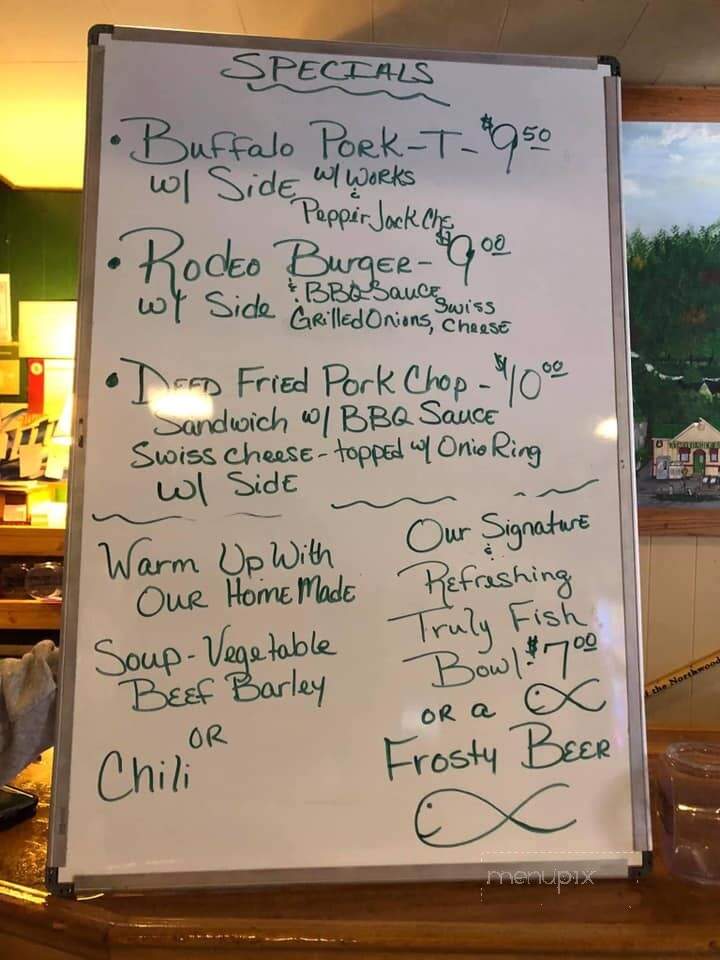 SPECIALS
• Buffalo Pork-T- $9.50
w/ Side w/ Works
& Pepper Jack Che
• Rodeo Burger- $9.00
w/ Side & BBQ Sauce, Swiss
Grilled Onions, Cheese
• Deep Fried Pork Chop - $10.00
Sandwich w/ BBQ Sauce
Swiss Cheese - topped w/ Onio Ring
w/ Side
Warm Up With
Our HomeMade
Soup - Vegetable
Beef Barley
OR
Chili
Our Signature
&
Refrashing
Truly Fish
Bowl $7.00
OR a
Frosty Beer
the Northwood
menupix